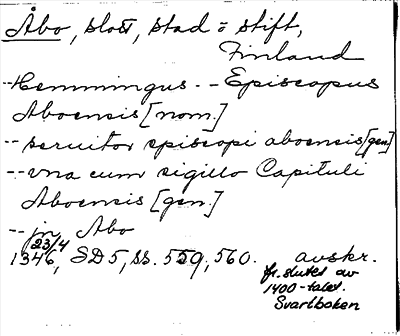 Åbo, slott, stad o stift,
Finland
-- Hemmingus -- Episcopus
Aboensis [nom.]
-- seruitor episcopi aboensis [gen]
-- vna cum sigillo Capituli
Aboensis [gen.]
-- jn Abo
23/4
1346, SD5, ss. 559, 560. avskr.
fr. slutet av
1400-talet.
Svartboken